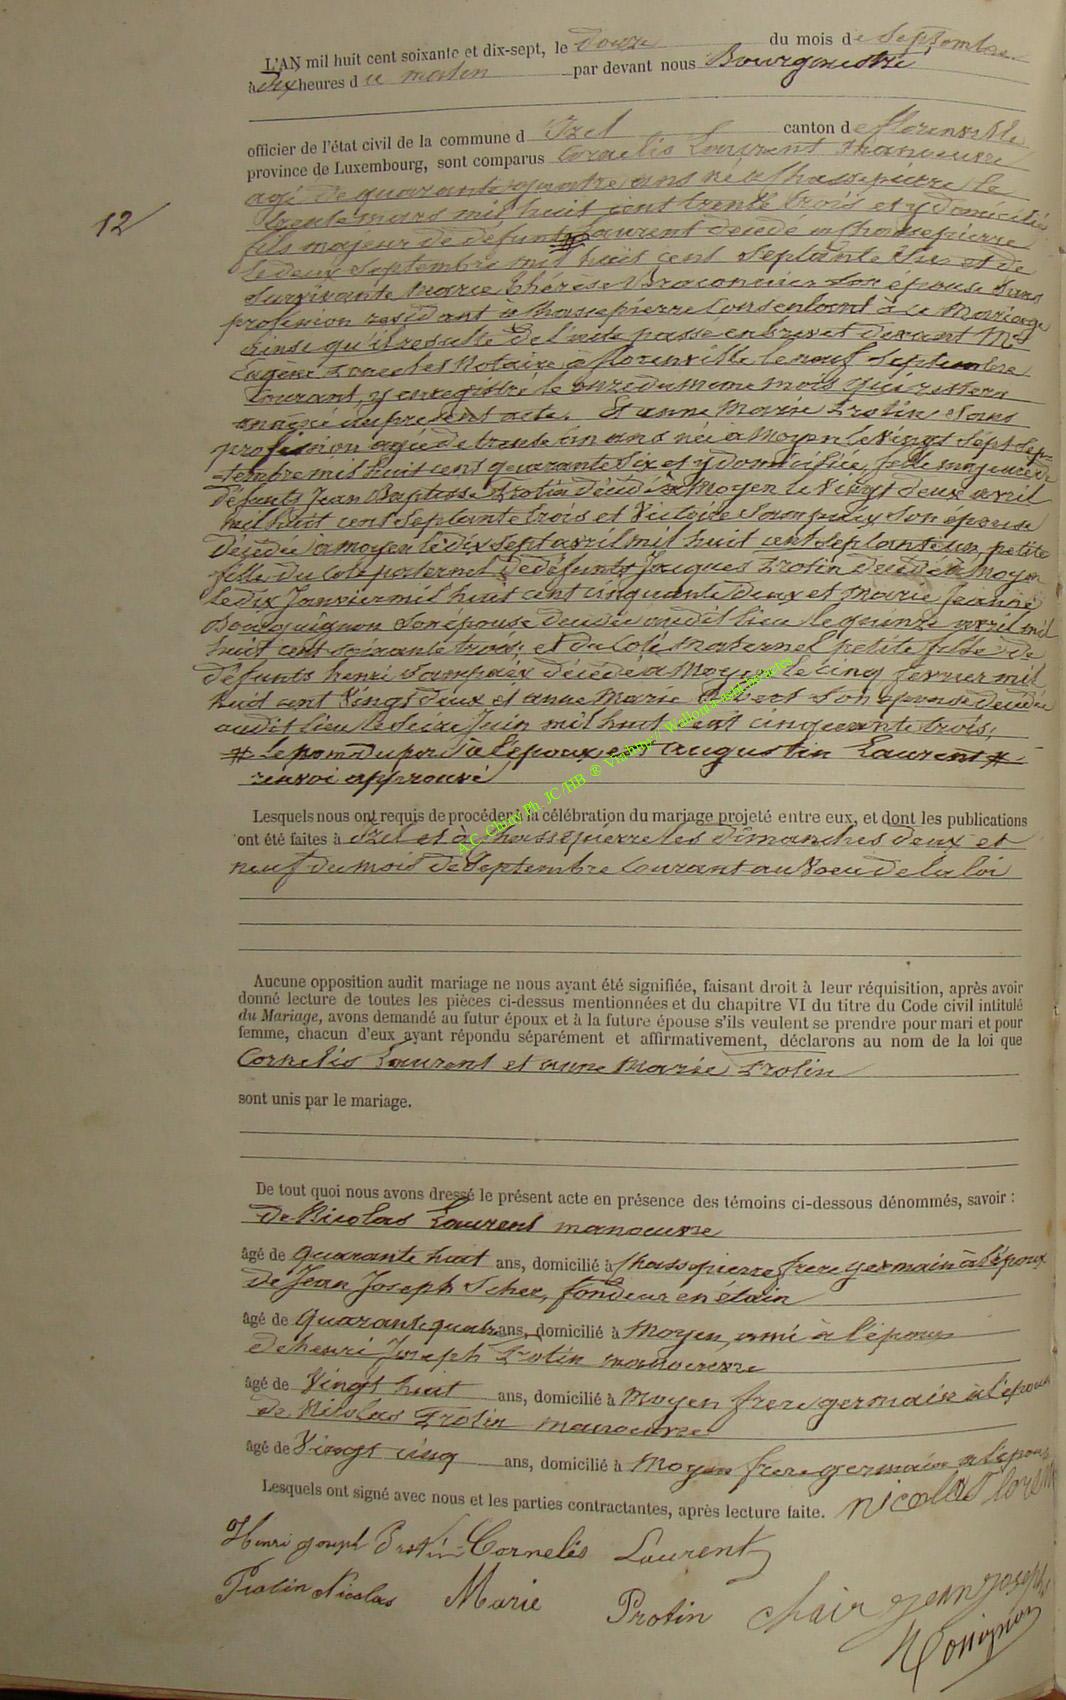 L'AN mil huit cent soixante et dix-sept, le douze du mois de Septembre
à dix heures du matin par devant nous Bourgmestre
officier de l'état civil de la commune d Izel canton de florenville
province de Luxembourg, sont comparus Cornelis Laurent manoeuvre
agé de quarante quatre ans né a Chassepierre le
12
trente mars mil huit cent trente trois et y domicilié
fils majeur de défunt # Laurent décédé a Chassepierre
le deux Septembre mil huit cent Septante et de
Survivante Marie Thérèse Braconnier son épouse sans
profession residant à Chassepierre Consentant à ce Mariage
ainsi qu'il resulte de l'acte passé en brevet devant Me
Eugène Notaire à florenville le neuf Septembre
Courant, y enregistré le onze du meme mois qui restera
annexé au présent acte. Et anne Marie Protin, Sans
profession agée de trente un ans née a Moyen le Vingt Sept Sep-
-tembre mil huit cent quarante Six et y domiciliée, fille majeure de
défunts Jean Baptiste Protin décédé à Moyen le Vingt deux avril
mil huit cent Septante trois et Victoire Son épouse
Décédée a moyen le dix Sept avril mil huit cent Septante un, petite
fille du coté paternel de defunts Jacques Protin décédé à Moyen
le dix Janvier mil huit cent cinquante deux et Marie Jeanne
Bourguignon Son épouse decedée audit lieu le quinze avril mil
huit cent soixante trois; et du coté Maternel petite fille de
défunts henri décédé a Moyen le cinq fevrier mil
huit cent Vingt deux et anne Marie Son epouse decedée
audit lieu le Seize Juin mil huit cent cinquante trois.
# le prénom du père de l'époux est augustin Laurent #.
renvoi approuvé
Lesquels nous ont requis de procéder à la célébration du mariage projeté entre eux, et dont les publications
ont été faites à Izel et à Chassepierre les dimanches deux et
neuf du mois de Septembre Courant au Voeu de la loi
A.C. Chiny Ph. JC/HB ® Viaduc / Wallonia asbl
Aucune opposition audit mariage ne nous ayant été signifiée, faisant droit à leur réquisition, après avoir
donné lecture de toutes les pièces ci-dessus mentionnées et du chapitre VI du titre du Code civil intitulé
du Mariage, avons demandé au futur époux et à la future épouse s'ils veulent se prendre pour mari et pour
femme, chacun d'eux ayant répondu séparément et affirmativement, déclarons au nom de la loi que
Cornelis Laurent et anne Marie Protin
sont unis par le mariage.
De tout quoi nous avons dressé le présent acte en présence des témoins ci-dessous dénommés, savoir :
de Nicolas Laurent manoeuvre
âgé de quarante huit ans, domicilié à Chassepierre frere germain à l'époux
de Jean Joseph Scher, fondeur en étain
âgé de quarante quatre ans, domicilié à Moyen, ami à l'époux
de henri Joseph Protin manoeuvre
âgé de Vingt huit ans, domicilié à Moyen frere germain à l'épouse
de Nicolas Protin manoeuvre
âgé de Vingt cinq ans, domicilié à Moyen frere germain a l'épouse
Lesquels ont signé avec nous et les parties contractantes, après lecture faite. nicolas lorent
Henri Joseph Protin Cornelis Laurent
Protin Nicolas Marie Protin chair jean joseph